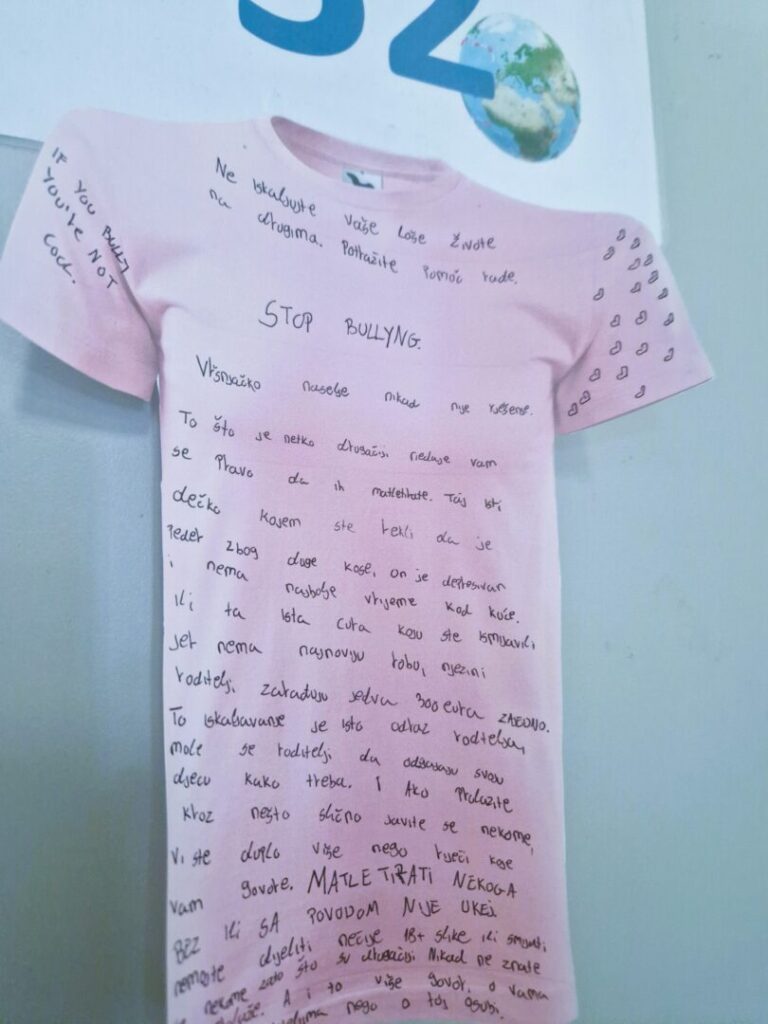 52
IF YOU BULLY
YOU'RE NOT
COCL.
Ne iskaljujte vaše loše živote
na drugima. Potražite pomoć rađe.
STOP BULLYNG.
Vršnjačko naselje nikad nije rješenje.
To što je netko drugačiji nedaje vam
se pravo da ih maltretirate. Taj isti
dečko kojem ste rekli da je
peder zbog duge kose, on je depresivan
i nema najbolje vrijeme kod kuće.
ili ta ista cura koju ste ismijavili
jer nema najnoviju robu, njezini
roditelji zarađuju jedva 300 eura ZAJEDNO.
To iskaljavanje je isto odraz roditelja,
mole se roditelji da odgajaju svoju
djecu kako treba. I Ako prolazite
kroz nešto slično javite se nekome,
vi ste duplo više nego riječi koje
vam govore. MALTRETIRATI NEKOGA
BEZ ILI SA POVODOM NIJE UKEJ.
nemojte dijeliti nečije 18+ slike ili smijati
se nekome zato što su drugačiji Nikad ne znate
A i to više govori o vama
nego o toj osobi.